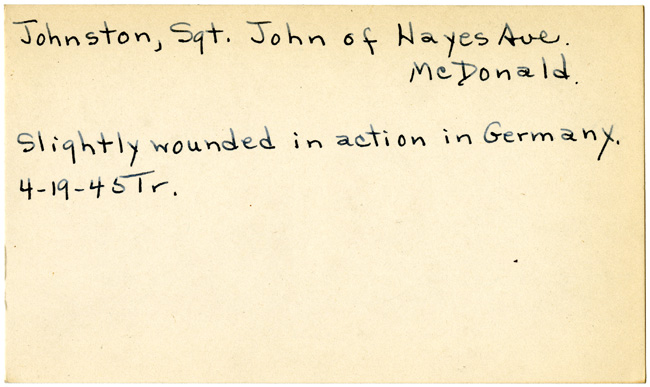 Johnston, Sgt. John of Hayes Ave.
McDonald.
Slightly wounded in action in Germany.
4-19-45 Tr.